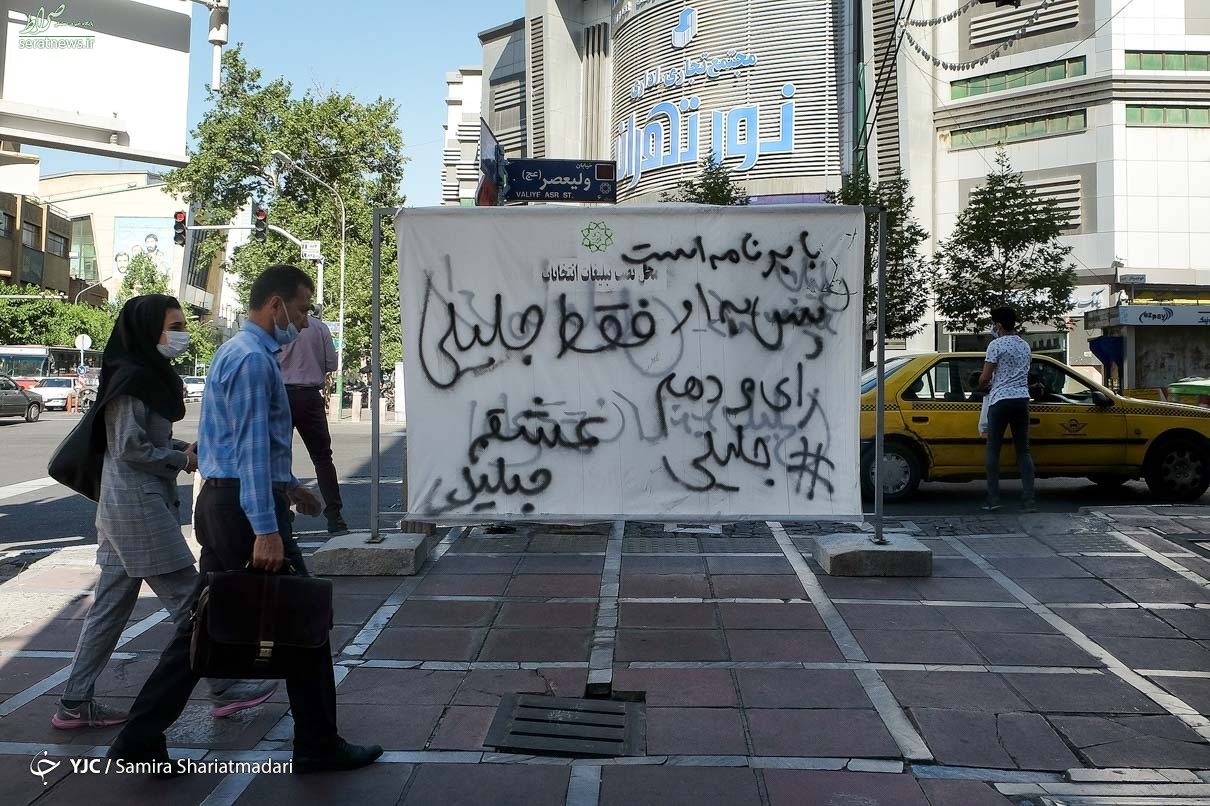 صراط
seratnews.ir
مجتمع تجاری اداری
نور تهران
خیابان
ولیعصر (عج)
VALIYE ASR ST.
محل نصب تبلیغات انتخابات
با برنامه است
فقط جلیلی
رای و دهم
#جلیلی
عشقم
جلیلی
ezPay
YJC / Samira Shariatmadari